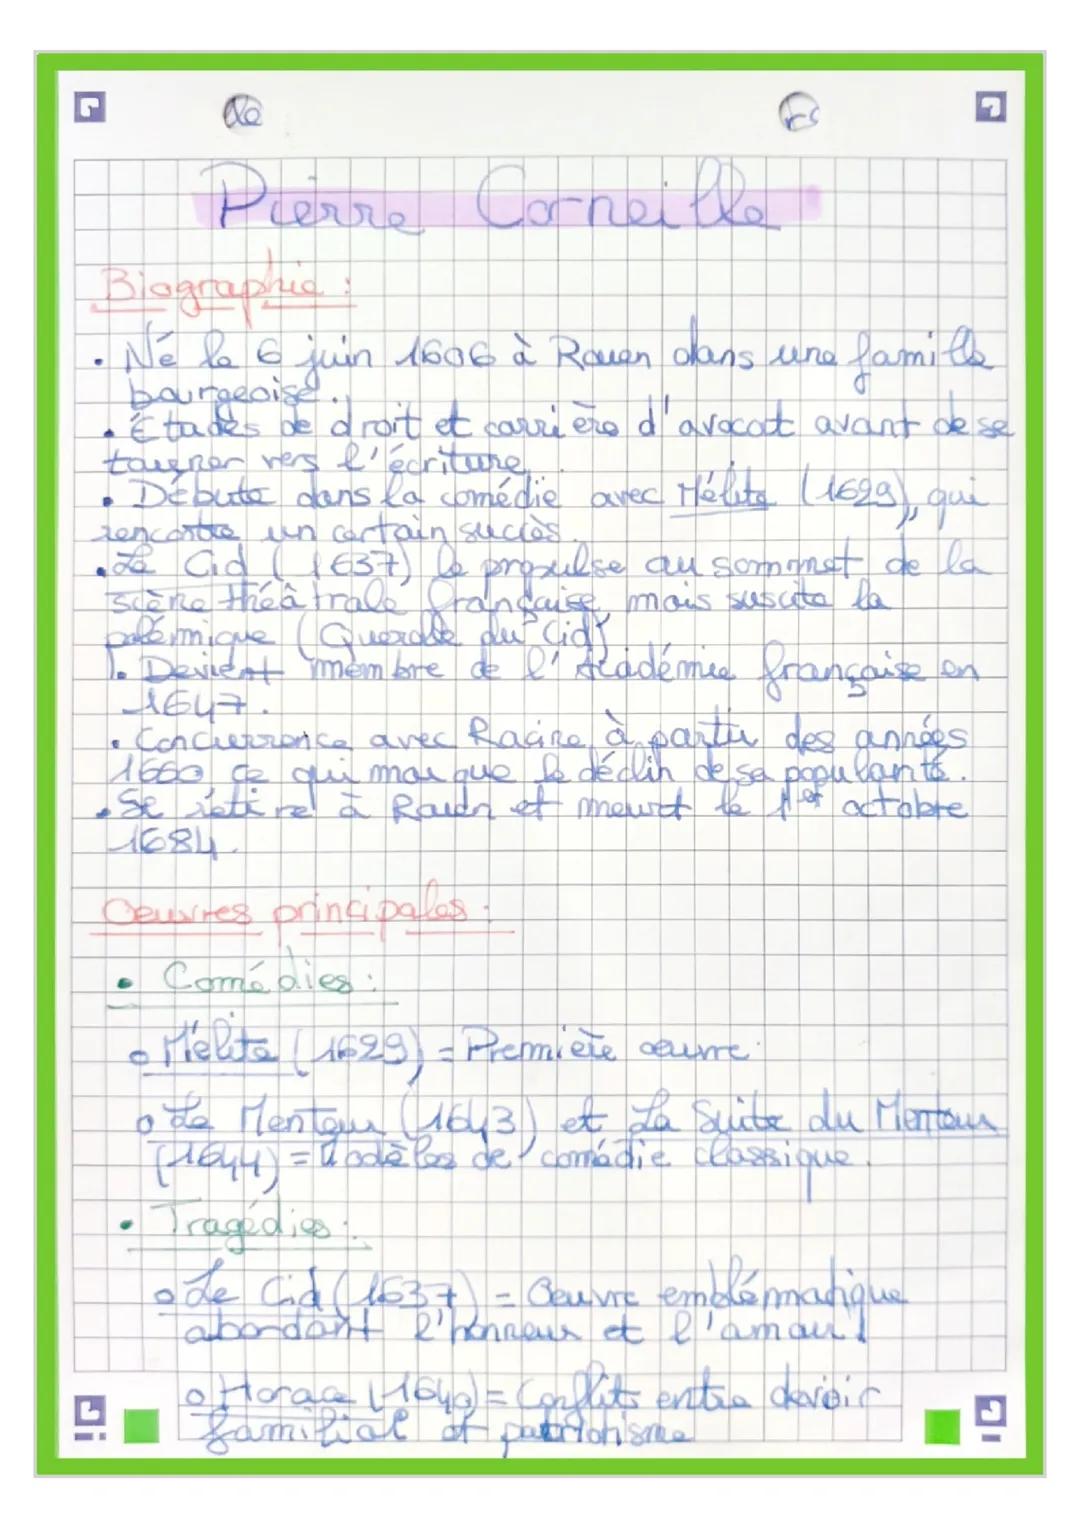 Pierre Corneille
Biographie :
• Né le 6 juin 1606 à Rouen dans une famille
bourgeoise.
• Études de droit et carrière d'avocat avant de se
tourner vers l'écriture.
• Débute dans la comédie avec Mélite (1629), qui
rencontre un certain succès.
• Le Cid (1637) le propulse au sommet de la
scène théâtrale française, mais suscite la
polémique (Querelle du Cid)
• Devient membre de l'Académie française en
1647.
• Concurrence avec Racine à partir des années
1660 ce qui marque le déclin de sa popularité.
• Se retire à Rouen et meurt le 1er octobre
1684.
Oeuvres principales :
• Comédies :
o Mélite (1629) = Première œuvre.
o Le Menteur (1643) et La Suite du Menteur
(1644) = Modèles de comédie classique.
• Tragédies :
o Le Cid (1637) = Oeuvre emblématique
abordant l'honneur et l'amour.
o Horace (1640) = Conflits entre devoir
familial et patriotisme